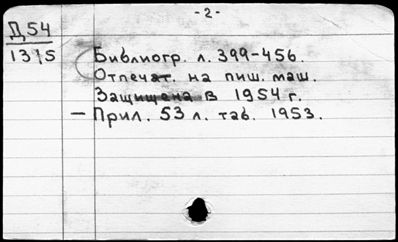 - 2 -
Д 54
1315
Библиогр. л. 399-456.
Отпечат. на пиш. маш.
Защищена в 1954 г.
— Прил. 53 л. таб. 1953.